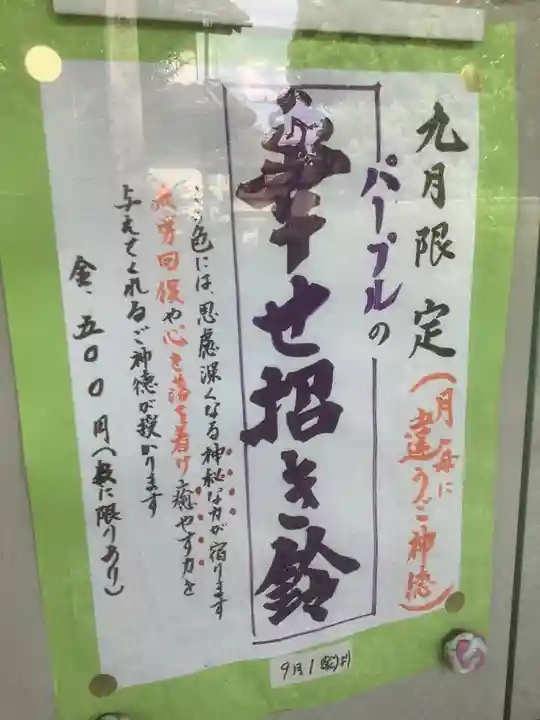 九月限定(月毎に違うご神徳)
パープルの
幸せ招き鈴
色には、思慮深くなる神秘な力が宿ります
疲労回復や心を落ち着け癒やす力を
与えてくれるご神徳が授かります
金、五〇〇円(数に限りあり)
9月1日(金)より